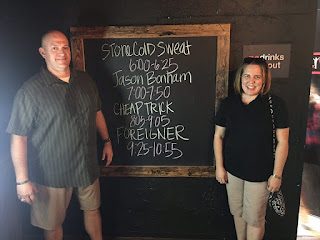 StoneCold Sweat
6:00-6:25
Jason Bonham
7:00-7:50
CHEAP TRICK
8:05-9:05
FOREIGNER
9:25-10:55
drinks
out